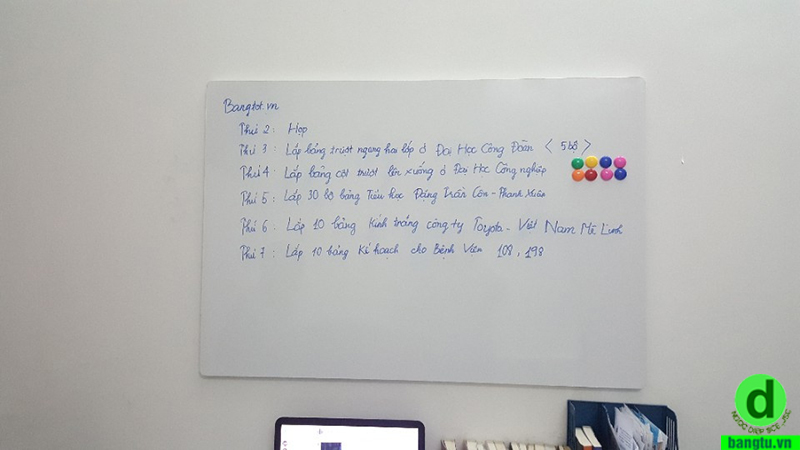 Bangtot.vn
Thứ 2: Họp
Thứ 3: Lắp bảng trượt ngang hai lớp ở Đại Học Công Đoàn < 5 bộ >
Thứ 4: Lắp bảng cột trượt lên xuống ở Đại Học Công nghiệp
Thứ 5: Lắp 30 bộ bảng Tiểu học Đặng Trần Côn - Thanh Xuân
Thứ 6: Lắp 10 bảng Kính trắng công ty Toyota - Việt Nam Mê Linh
Thứ 7: Lắp 10 bảng Kế hoạch cho Bệnh Viện 108, 198
d
NGOC DIEP SCE .,JSC
bangtu.vn